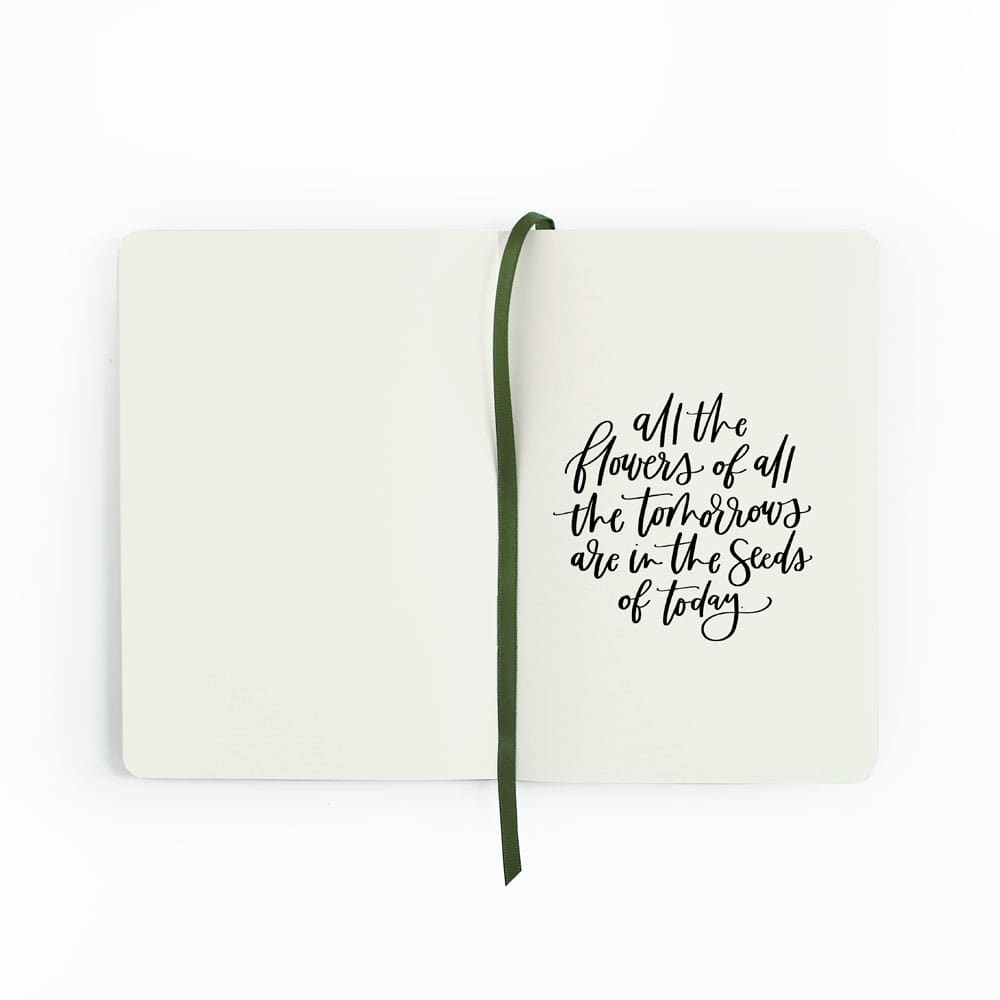 all the
flowers of all
the tomorrows
are in the seeds
of today.